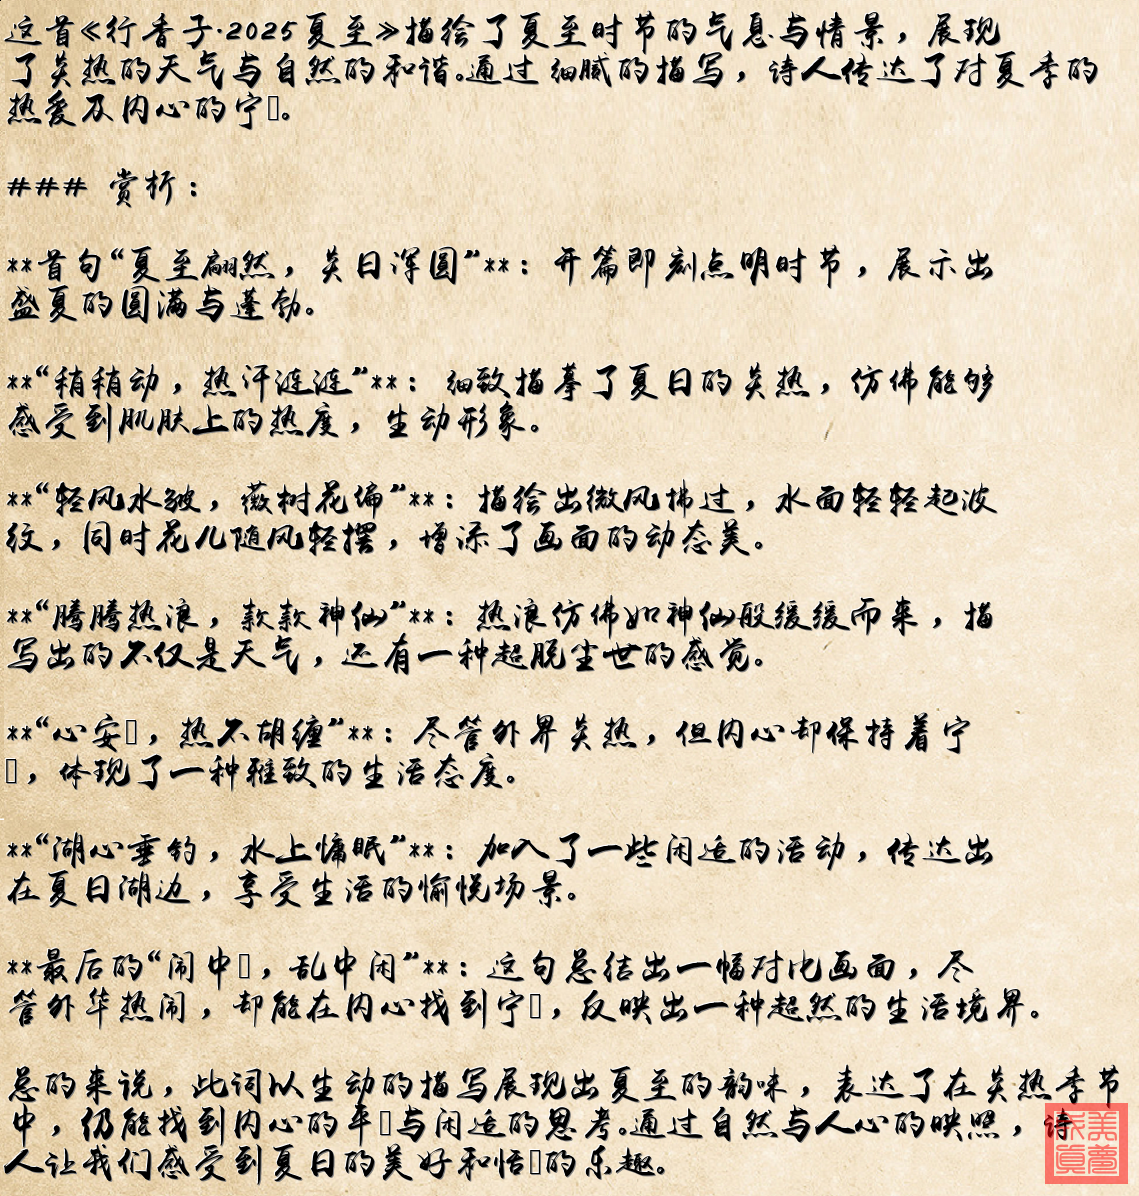 这首《行香子·2025夏至》描绘了夏至时节的气息与情景，展现
了炎热的天气与自然的和谐。通过细腻的描写，诗人传达了对夏季的
热爱及内心的宁▯。
### 赏析：
**首句“夏至翩然，炎日浑圆”**：开篇即刻点明时节，展示出
盛夏的圆满与蓬勃。
**“稍稍动，热汗涟涟”**：细致描摹了夏日的炎热，仿佛能够
感受到肌肤上的热度，生动形象。
**“轻风水皱，薇树花偏”**：描绘出微风拂过，水面轻轻起波
纹，同时花儿随风轻摆，增添了画面的动态美。
**“腾腾热浪，款款神仙”**：热浪仿佛如神仙般缓缓而来，描
写出的不仅是天气，还有一种超脱尘世的感觉。
**“心安▯，热不胡缠”**：尽管外界炎热，但内心却保持着宁
▯，体现了一种雅致的生活态度。
**“湖心垂钓，水上慵眠”**：加入了一些闲适的活动，传达出
在夏日湖边，享受生活的愉悦场景。
**最后的“闹中▯，乱中闲”**：这句总结出一幅对比画面，尽
管外华热闹，却能在内心找到宁▯，反映出一种超然的生活境界。
总的来说，此词以生动的描写展现出夏至的韵味，表达了在炎热季节
中，仍能找到内心的平▯与闲适的思考。通过自然与人心的映照，诗
人让我们感受到夏日的美好和恬▯的乐趣。